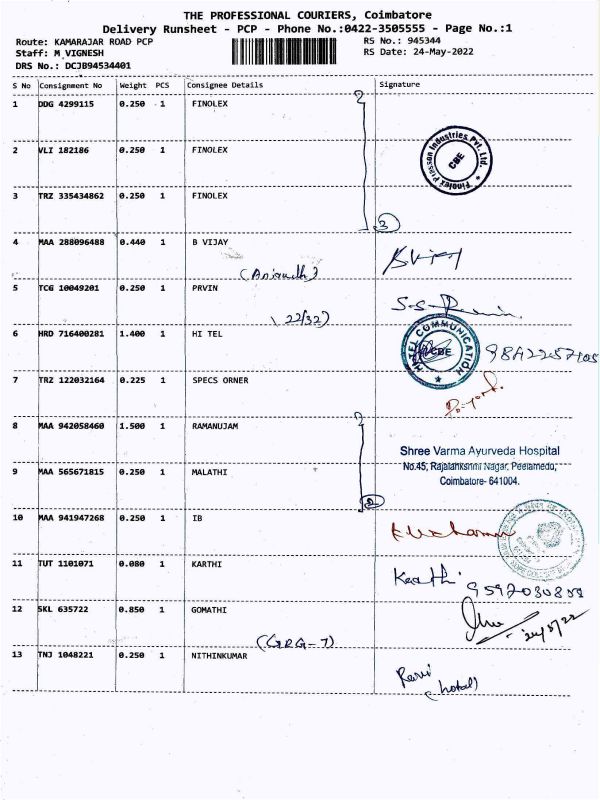 THE PROFESSIONAL COURIERS, Coimbatore
Delivery Runsheet - PCP - Phone No.:0422-3505555 - Page No.:1
Route: KAMARAJAR ROAD PCP
RS No.: 945344
Staff: M VIGNESH
RS Date: 24-May-2022
DRS No.: DCJB94534401
S No Consignment No Weight PCS Consignee Details Signature
1 DDG 4299115 0.250 1 FINOLEX
2 VLI 182186 0.250 1 FINOLEX
Finolex Plasson Industries Pvt. Ltd. CBE
3 TRZ 335434862 0.250 1 FINOLEX
3
4 MAA 288096488 0.440 1 B VIJAY
(Anirudh)
5 TCG 10049201 0.250 1 PRVIN
22/32)
6 HRD 716400281 1.400 1 HI TEL
HITEL COMMUNICATION CBE
7 TRZ 122032164 0.225 1 SPECS ORNER
8 MAA 942058460 1.500 1 RAMANUJAM
Shree Varma Ayurveda Hospital
No.45, Rajalakshmi Nagar, Peelamedu,
Coimbatore- 641004.
9 MAA 565671815 0.250 1 MALATHI
2
10 MAA 941947268 0.250 1 IB
11 TUT 1101071 0.080 1 KARTHI
Karthi
12 SKL 635722 0.850 1 GOMATHI
24/5/22
(GRG-7)
13 TNJ 1048221 0.250 1 NITHINKUMAR
Ravi
(hotel)